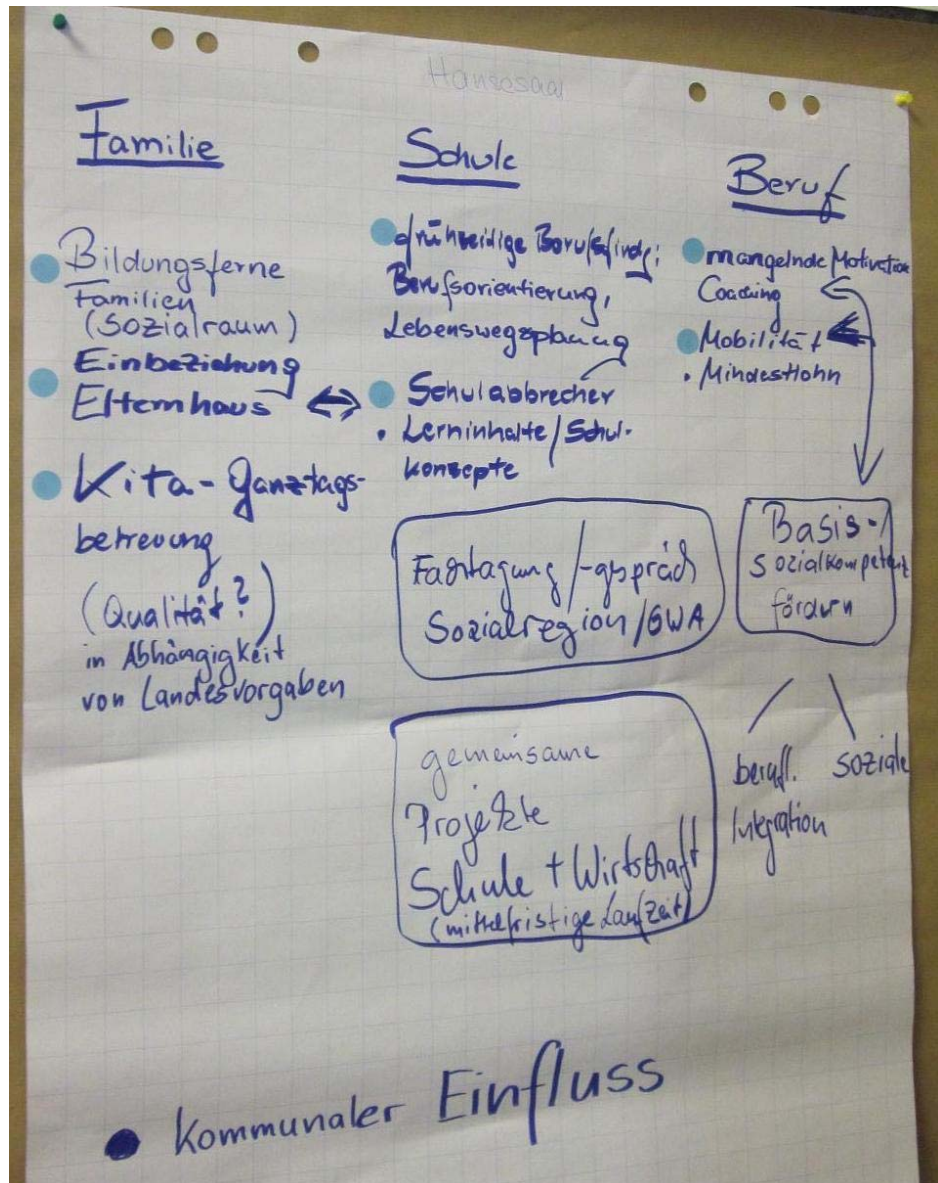 Hansesaal
Familie
Bildungsferne
Familien
(Sozialraum)
Einbeziehung
Elternhaus
Kita-Ganztags-
betreuung
(Qualität?)
in Abhängigkeit
von Landesvorgaben
Schule
frühzeitige Berufsfindg;
Berufsorientierung,
Lebenswegsplanung
Schulabbrecher
• Lerninhalte/Schul-
konzepte
Fachtagung/-gspräch
Sozialregion/GWA
gemeinsame
Projekte
Schule + Wirtschaft
(mittelfristige Laufzeit)
Beruf
mangelnde Motivation
Coaching
Mobilität
• Mindestlohn
Basis-/
Sozialkompetenz
fördern
berufl. soziale
Integration
• Kommunaler Einfluss